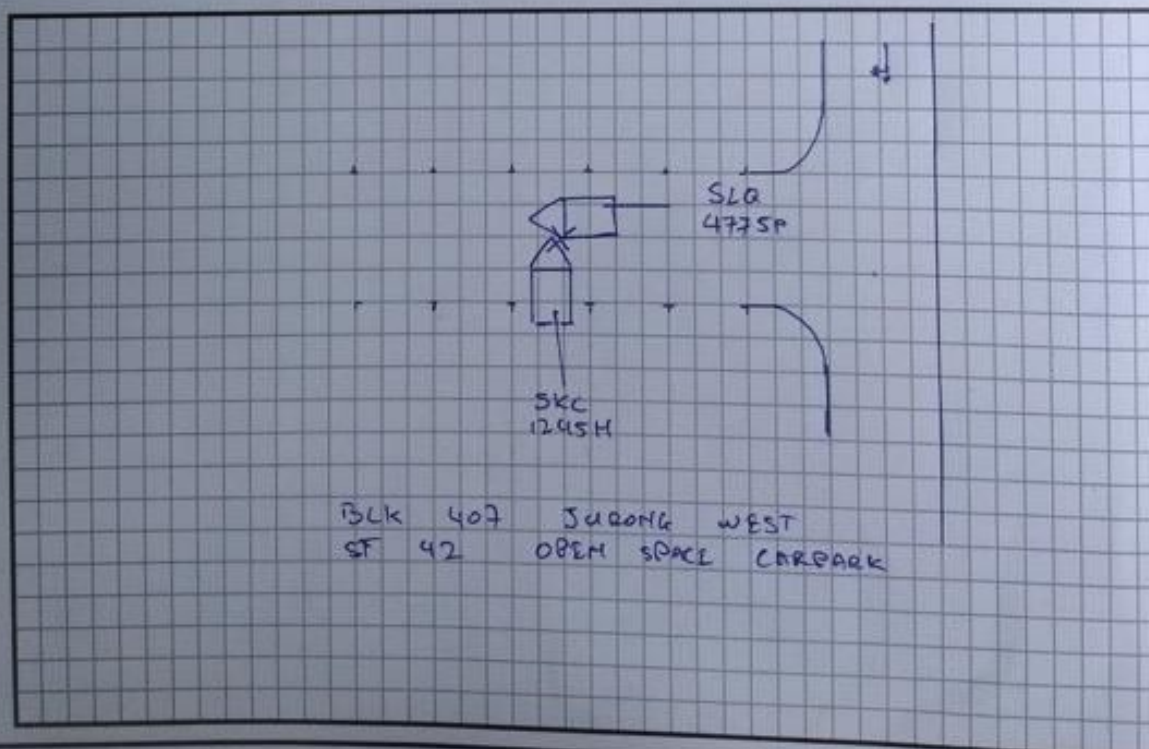 SLQ
4775P
SKC
1245H
BLK 407 JURONG WEST
ST 42 OPEN SPACE CARPARK